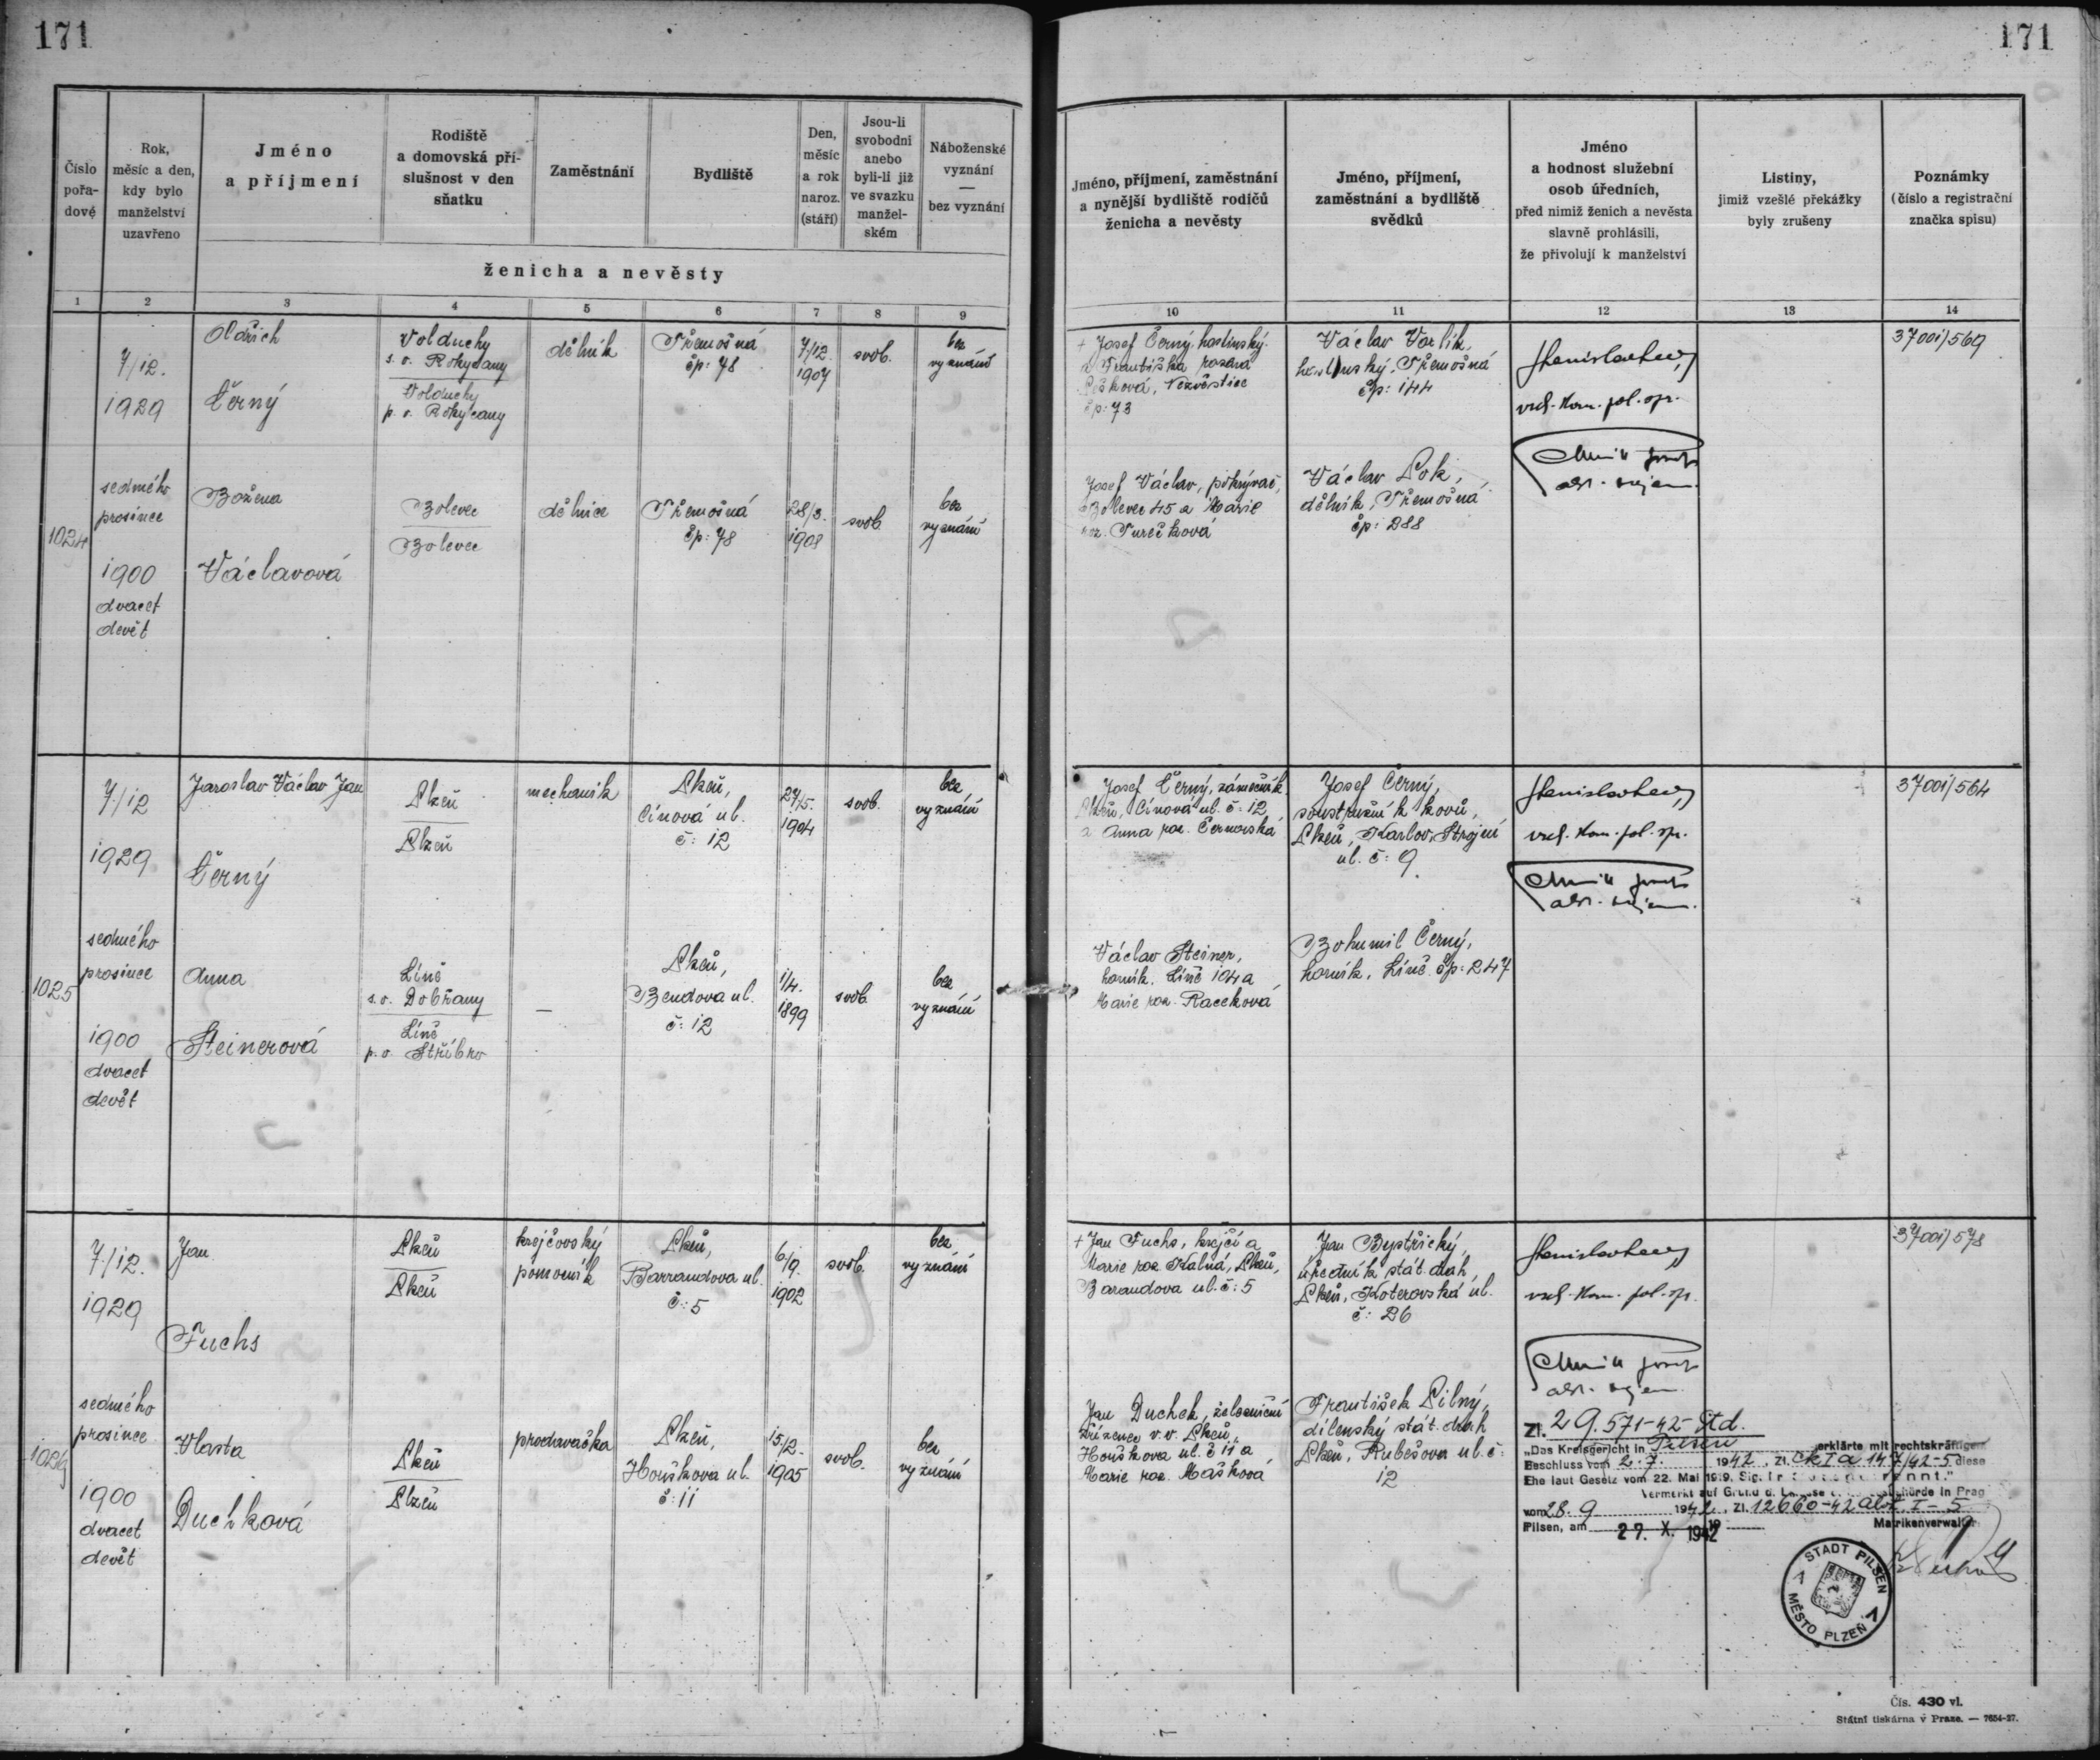 171
171
Číslo
pořa-
dové
Rok,
měsíc a den,
kdy bylo
manželství
uzavřeno
Jméno
a příjmení
Rodiště
a domovská pří-
slušnost v den
sňatku
Zaměstnání
Bydliště
Den,
měsíc
a rok
naroz.
(stáří)
Jsou-li
svobodni
anebo
byli-li již
ve svazku
manžel-
ském
Náboženské
vyznání
—
bez vyznání
ženicha a nevěsty
1 2 3 4 5 6 7 8 9
Jméno, příjmení, zaměstnání
a nynější bydliště rodičů
ženicha a nevěsty
Jméno, příjmení,
zaměstnání a bydliště
svědků
Jméno
a hodnost služební
osob úředních,
před nimiž ženich a nevěsta
slavně prohlásili,
že přivolují k manželství
Listiny,
jimiž vzešlé překážky
byly zrušeny
Poznámky
(číslo a registrační
značka spisu)
10 11 12 13 14
1024
7/12.
1929
sedmého
prosince
1900
dvacet
devět
Oldřich
Černý
Volduchy
s. o. Rokycany
Volduchy
p. o. Rokycany
dělník
Třemošná
čp: 78
7/12.
1907
svob.
bez
vyznání
Božena
Václavová
Bolevec
Bolevec
dělnice
Třemošná
čp: 78
28/3.
1908
svob
bez
vyznání
+ Josef Černý, havlínský
a Františka rozená
Pešková, Nezvěstice
čp: 73
Václav Varlík,
Třemošná
čp: 144
vrch. kom. pol. spr.
37001/569
Josef Václav, pokrývač,
Bolevec 45 a Marie
roz. Turečková
Václav Pok,
dělník, Třemošná
čp: 288
1025
7/12
1929
sedmého
prosince
1900
dvacet
devět
Jaroslav Václav Jan
Černý
Plzeň
Plzeň
mechanik
Plzeň,
Cínová ul.
č: 12
27/5.
1904
svob.
bez
vyznání
Anna
Steinerová
Líně
s. o. Dobřany
Líně
p. o. Stříbro
—
Plzeň,
Bendova ul.
č: 12
1/4.
1899
svob.
bez
vyznání
Josef Černý, zámečník
Plzeň, Cínová ul. č: 12
a Anna roz. Černovská
Josef Černý,
soustružník kovů,
Plzeň, Karlov, Strojní
ul. č: 9
vrch. kom. pol. spr.
37001/564
Václav Steiner,
horník, Líně 104 a
Marie roz. Raceková
Bohumil Černý,
horník, Líně čp: 247
1026
7/12.
1929
sedmého
prosince
1900
dvacet
devět
Jan
Fuchs
Plzeň
Plzeň
krejčovský
pomocník
Plzeň,
Barrandova ul.
č: 5
6/9.
1902
svob.
bez
vyznání
Vlasta
Duchková
Plzeň
Plzeň
prodavačka
Plzeň,
Houškova ul.
č: 11
15/2.
1905
svob.
bez
vyznání
+ Jan Fuchs, krejčí a
Marie roz. Kalná, Plzeň,
Barandova ul. č: 5
Jan Bystřický,
úředník stát. drah,
Plzeň, Koterovská ul.
č: 26
vrch. kom. pol. spr.
37001/578
Jan Duchek, železniční
zřízenec v. v. Plzeň,
Houškova ul. č 11 a
Marie roz. Mašková
František Pilný,
dílenský stát. drah
Plzeň, Rubešova ul. č:
12
Zl. 29.571-42-Std.
„Das Kreisgericht in Pilsen erklärte mit rechtskräftigem
Beschluss vom 2. 7. 1942, Zl. Ck I a 147/42-5 diese
Ehe laut Gesetz vom 22. Mai 1919, Sig.
Vermerkt auf Grund d. Prag
vom 28. 9 1942, Zl. 12660-42 Abt. I-5
Pilsen, am 27. X. 1942
Matrikenverwalter:
STADT PILSEN
MĚSTO PLZEŇ
1 1
Čís. 430 vl.
Státní tiskárna v Praze. — 7654-27.